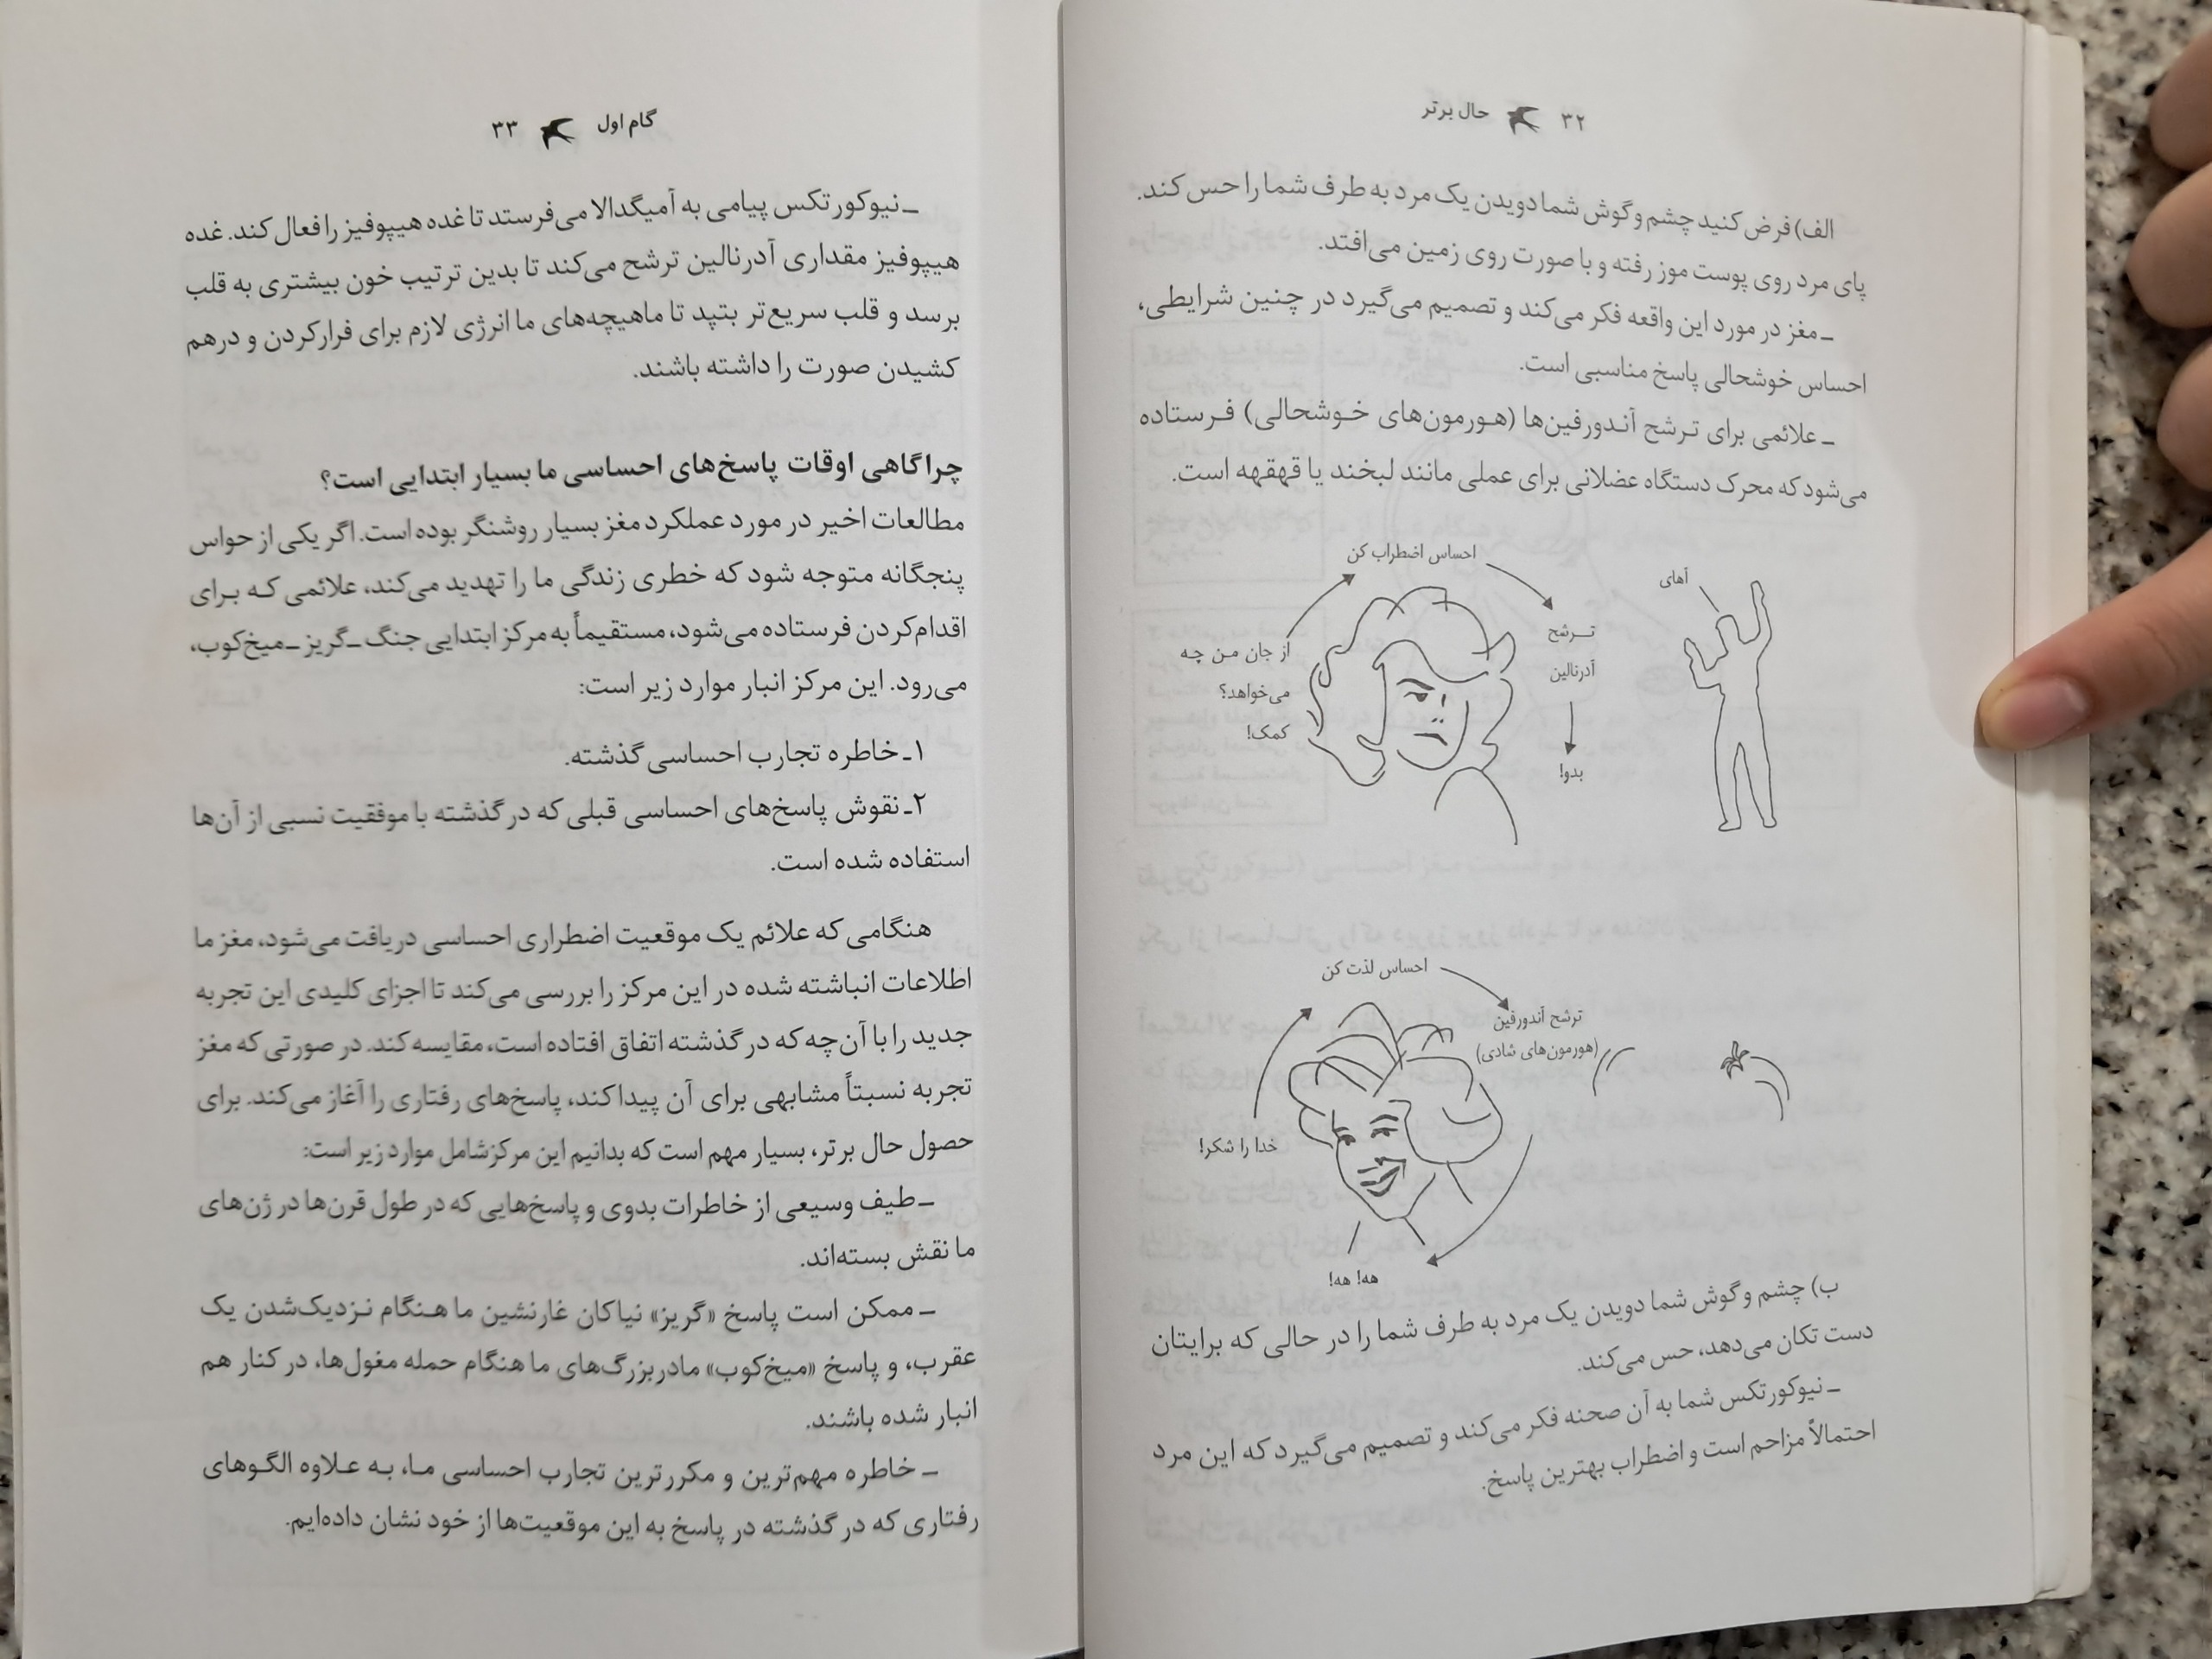 ۳۲ حال برتر
الف) فرض کنید چشم و گوش شما دویدن یک مرد به طرف شما را حس کند.
پای مرد روی پوست موز رفته و با صورت روی زمین می‌افتد.
ـ مغز در مورد این واقعه فکر می‌کند و تصمیم می‌گیرد در چنین شرایطی،
احساس خوشحالی پاسخ مناسبی است.
ـ علائمی برای ترشح آندورفین‌ها (هورمون‌های خوشحالی) فرستاده
می‌شود که محرک دستگاه عضلانی برای عملی مانند لبخند یا قهقهه است.
احساس اضطراب کن
آهای
ترشح
آدرنالین
بدو!
از جان من چه
می‌خواهد؟
کمک!
احساس لذت کن
ترشح آندورفین
(هورمون‌های شادی)
خدا را شکر!
هه! هه!
ب) چشم و گوش شما دویدن یک مرد به طرف شما را در حالی که برایتان
دست تکان می‌دهد، حس می‌کند.
ـ نیوکورتکس شما به آن صحنه فکر می‌کند و تصمیم می‌گیرد که این مرد
احتمالاً مزاحم است و اضطراب بهترین پاسخ.
گام اول ۳۳
ـ نیوکورتکس پیامی به آمیگدالا می‌فرستد تا غده هیپوفیز را فعال کند. غده
هیپوفیز مقداری آدرنالین ترشح می‌کند تا بدین ترتیب خون بیشتری به قلب
برسد و قلب سریع‌تر بتپد تا ماهیچه‌های ما انرژی لازم برای فرارکردن و درهم
کشیدن صورت را داشته باشند.
چرا گاهی اوقات پاسخ‌های احساسی ما بسیار ابتدایی است؟
مطالعات اخیر در مورد عملکرد مغز بسیار روشنگر بوده است. اگر یکی از حواس
پنجگانه متوجه شود که خطری زندگی ما را تهدید می‌کند، علائمی که برای
اقدام‌کردن فرستاده می‌شود، مستقیماً به مرکز ابتدایی جنگ ـ گریز ـ میخ‌کوب،
می‌رود. این مرکز انبار موارد زیر است:
۱ـ خاطره تجارب احساسی گذشته.
۲ـ نقوش پاسخ‌های احساسی قبلی که در گذشته با موفقیت نسبی از آن‌ها
استفاده شده است.
هنگامی که علائم یک موقعیت اضطراری احساسی دریافت می‌شود، مغز ما
اطلاعات انباشته شده در این مرکز را بررسی می‌کند تا اجزای کلیدی این تجربه
جدید را با آن‌چه که در گذشته اتفاق افتاده است، مقایسه کند. در صورتی که مغز
تجربه نسبتاً مشابهی برای آن پیدا کند، پاسخ‌های رفتاری را آغاز می‌کند. برای
حصول حال برتر، بسیار مهم است که بدانیم این مرکز شامل موارد زیر است:
ـ طیف وسیعی از خاطرات بدوی و پاسخ‌هایی که در طول قرن‌ها در ژن‌های
ما نقش بسته‌اند.
ـ ممکن است پاسخ «گریز» نیاکان غارنشین ما هنگام نزدیک‌شدن یک
عقرب، و پاسخ «میخ‌کوب» مادربزرگ‌های ما هنگام حمله مغول‌ها، در کنار هم
انبار شده باشند.
ـ خاطره مهم‌ترین و مکررترین تجارب احساسی ما، به علاوه الگوهای
رفتاری که در گذشته در پاسخ به این موقعیت‌ها از خود نشان داده‌ایم.